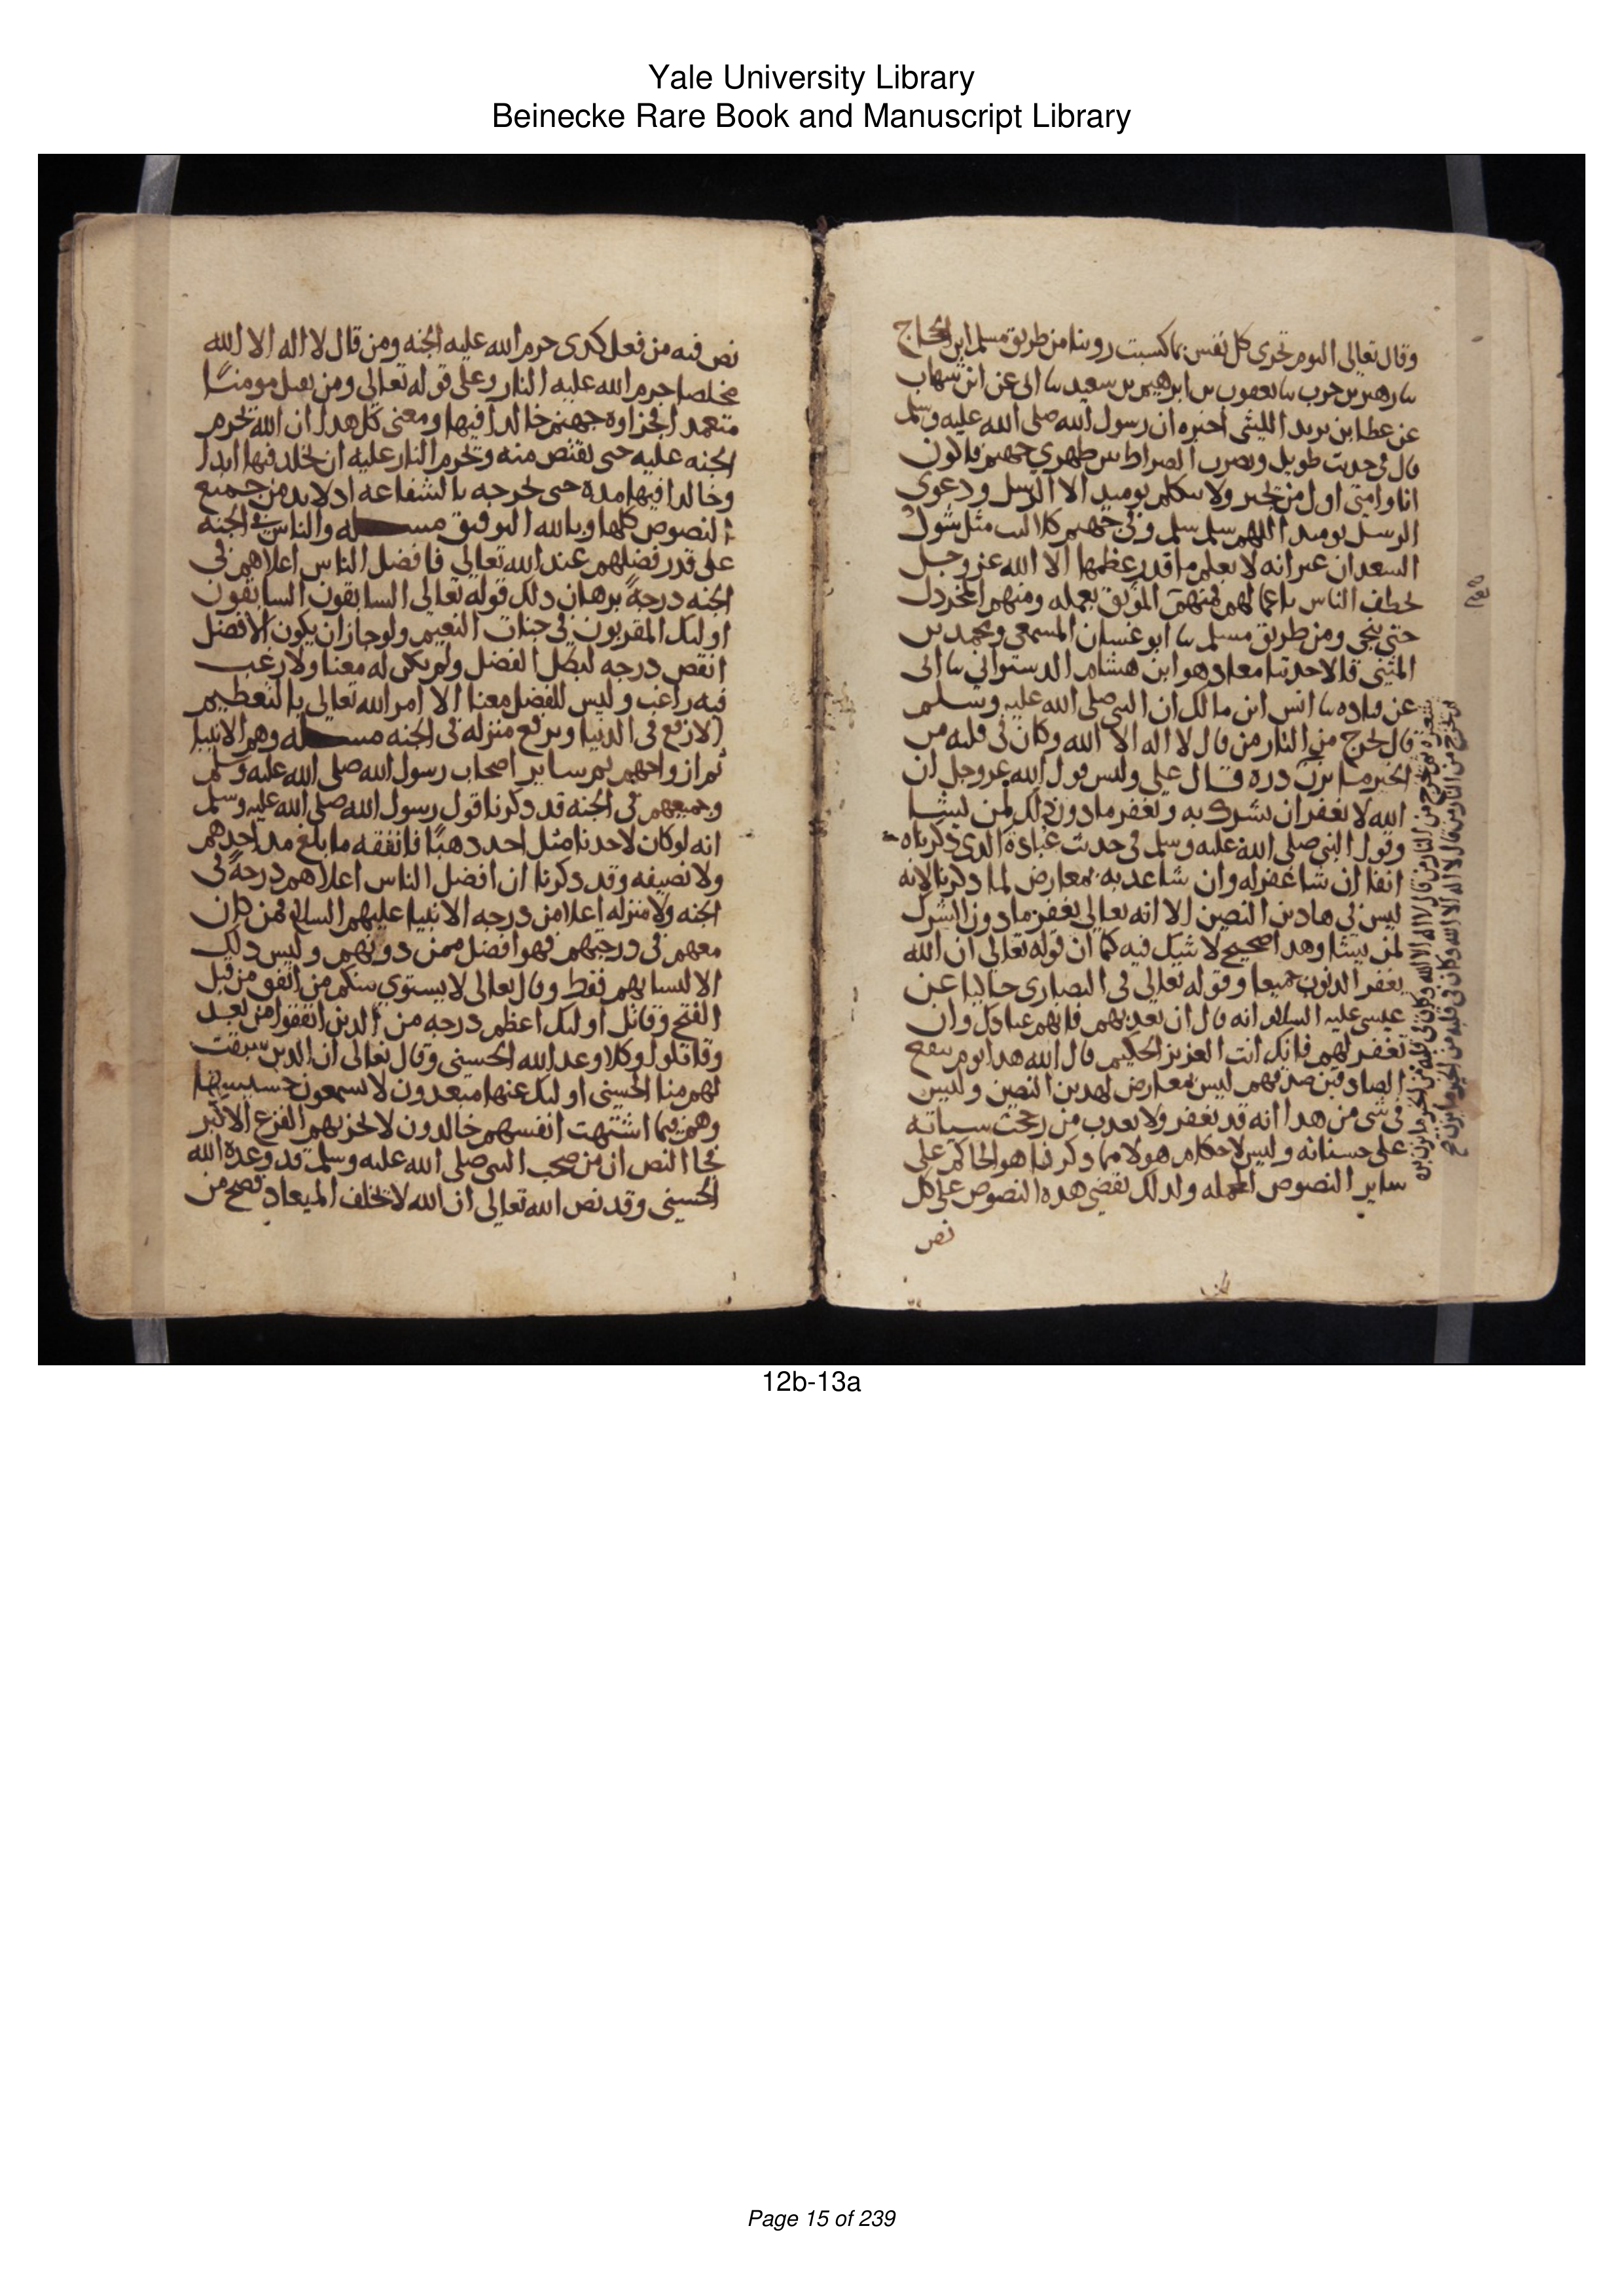 Yale University Library
Beinecke Rare Book and Manuscript Library
وقال تعالى اليوم تجزى كل نفس بما كسبت روينا من طريق مسلم ابن الحجاج
سا زهير بن حرب سا يعقوب بن ابرهيم بن سعيد سا ابى عن ابن شهاب
عن عطا بن يزيد الليثى اخبره ان رسول الله صلى الله عليه وسلم
قال فى حديث طويل ويضرب الصراط بين ظهرى جهنم فاكون
انا وامتى اول من يجيز ولا يتكلم يوميذ الا الرسل ودعوى
الرسل يوميذ اللهم سلم سلم وفى جهنم كلاليب مثل شوك
السعدان غير انه لا يعلم ما قدر عظمها الا الله عز وجل
تخطف الناس باعمالهم فمنهم الموبق بعمله ومنهم المخردل
حتى ينجى ومن طريق مسلم سا ابو غسان المسمعى ومحمد بن
المثنى قالا حدثنا معاذ هو ابن هشام الدستوانى سا ابى
عن قتاده سا انس ابن مالك ان النبى صلى الله عليه وسلم
قال يخرج من النار من قال لا اله الا الله وكان فى قلبه من
الخير ما يزن ذره قال على وليس قول الله عز وجل ان
الله لا يغفر ان يشرك به ويغفر ما دون ذلك لمن يشا
وقول النبى صلى الله عليه وسلم فى حديث عبادة الذى ذكرناه
انفا ان شا غفر له وان شا عذبه بمعارض لما ذكرنا لانه
ليس فى هاذين النصين الا انه تعالى يغفر ما دون الشرك
لمن يشا وهذا صحيح لا شك فيه كما ان قوله تعالى ان الله
يغفر الذنوب جميعا وقوله تعالى فى النصارى حاكيا عن
عيسى عليه السلام انه قال ان تعذبهم فانهم عبادك وان
تغفر لهم فانك انت العزيز الحكيم قال الله هذا يوم ينفع
الصادقين صدقهم ليس بمعارض لهذين النصين وليس
فى شى من هذا انه قد يغفر ولا يعذب من رجحت سياته
على حسناته وليس لاحكام هولا مما ذكرنا هو الحاكم على
ساير النصوص المجمله ولذلك تقضى هذه النصوص على كل
نص
شعيره ثم يخرج من النار من قال لا اله الا الله وكان فى قلبه من الخير ما يزن بره
ثم يخرج من النار من قال لا اله الا الله وكان فى قلبه من الخير ما يزن صح
نص فيه من فعل كدى حرم الله عليه الجنه ومن قال لا اله الا الله
مخلصا حرم الله عليه النار وعلى قوله تعالى ومن يقتل مومنا
متعمدا فجزاوه جهنم خالدا فيها ومعنى كل هذا ان الله يحرم
الجنه عليه حتى يقتص منه ويحرم النار عليه ان يخلد فيها ابدا
وخالدا فيها مده حتى يخرجه بالشفاعه اذ لا بد من جميع
النصوص كلها وبالله التوفيق مسـله والناس فى الجنه
على قدر فضلهم عند الله تعالى فافضل الناس اعلاهم فى
الجنه درجة برهان ذلك قوله تعالى السابقون السابقون
اوليك المقربون فى جنات النعيم ولو جاز ان يكون الافضل
انقص درجه لبطل الفضل ولم يكن له معنا ولا رغب
فيه راغب وليس للفضل معنا الا امر الله تعالى بالتعظيم
الارفع فى الدنيا وبرفع منزله فى الجنه مسـله وهم الانبيا
ثم ازواجهم ثم ساير اصحاب رسول الله صلى الله عليه وسلم
وجميعهم فى الجنه قد ذكرنا قول رسول الله صلى الله عليه وسلم
انه لو كان لاحدنا مثل احد ذهبا فانفقه ما بلغ مد احدهم
ولا نصيفه وقد ذكرنا ان افضل الناس اعلاهم درجة فى
الجنه ولا منزله اعلا من درجه الانبيا عليهم السلام فمن كان
معهم فى درجتهم فهو افضل ممن دونهم وليس ذلك
الا لنسايهم فقط وقال تعالى لا يستوى منكم من انفق من قبل
الفتح وقاتل اوليك اعظم درجه من الذين انفقوا من بعد
وقاتلوا وكلا وعد الله الحسنى وقال تعالى ان الذين سبقت
لهم منا الحسنى اوليك عنها مبعدون لا يسمعون حسيسها
وهم فيما اشتهت انفسهم خالدون لا يحزنهم الفزع الاكبر
فجا النص ان من صحب النبى صلى الله عليه وسلم قد وعده الله
الحسنى وقد نص الله تعالى ان الله لا يخلف الميعاد فصح من
12b-13a
Page 15 of 239